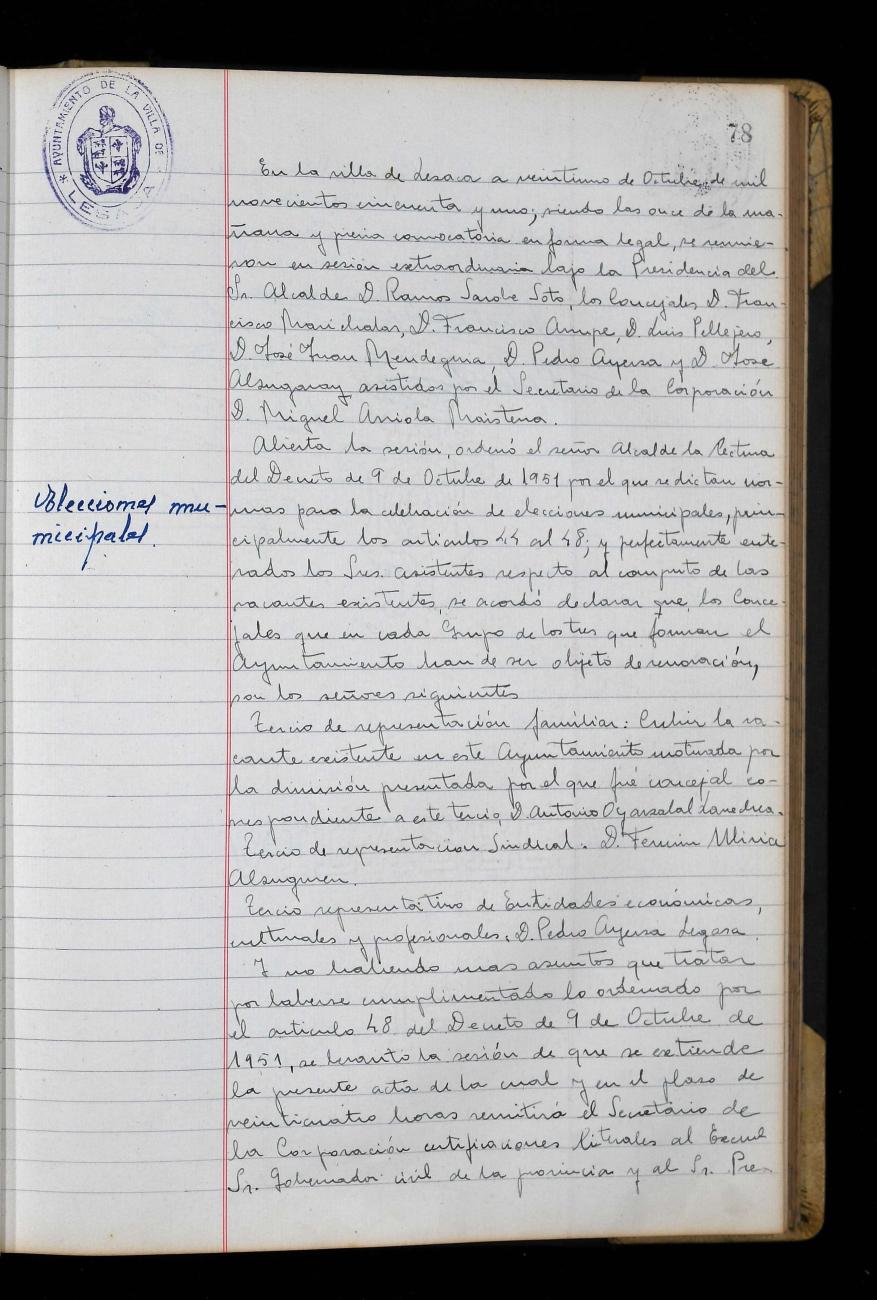 AYUNTAMIENTO DE LA VILLA DE
* LESACA
78
En la villa de Lesaca a veintiuno de Octubre de mil
novecientos cincuenta y uno; siendo las once de la ma-
ñana y previa convocatoria en forma legal, se reunie-
ron en sesión extraordinaria bajo la Presidencia del
Sr. Alcalde D. Ramos Sarobe Soto, los Concejales D. Fran-
cisco Marichalar, D. Francisco D. Luis Pellejero,
D. José Juan Mendeguia, D. Pedro Ayersa y D. José
Alzugaray asistidos por el Secretario de la Corporación
D. Miguel Arriola Maistena.
Abierta la sesión, ordenó el señor Alcalde la lectura
del Decreto de 9 de Octubre de 1951 por el que se dictan nor-
Elecciones mu-
nicipales.
mas para la celebración de elecciones municipales, prin-
cipalmente los articulos 44 al 48; y perfectamente ente-
rados los Sres. asistentes respecto al computo de las
vacantes existentes, se acordó declarar que, los Conce-
jales que en cada Grupo de los tres que forman el
Ayuntamiento han de ser objeto de renovación,
son los señores siguientes
Tercio de representación familiar: Cubrir la va-
cante existente en este Ayuntamiento motivada por
la dimisión presentada por el que fué concejal co-
rrespondiente a este tercio, D. Antonio Oyarzabal
Tercio de representacion Sindical. D. Fermin
Alzuguren.
Tercio representativo de Entidades económicas,
culturales y profesionales. D. Pedro Ayersa Legasa
Y no habiendo mas asuntos que tratar
por haberse cumplimentado lo ordenado por
el articulo 48 del Decreto de 9 de Octubre de
1951, se levanto la sesión de que se extiende
la presente acta de la cual y en el plazo de
veinticuatro horas remitirá el Secretario de
la Corporación certificaciones literales al Excmo
Sr. Gobernador civil de la provincia y al Sr. Pre-